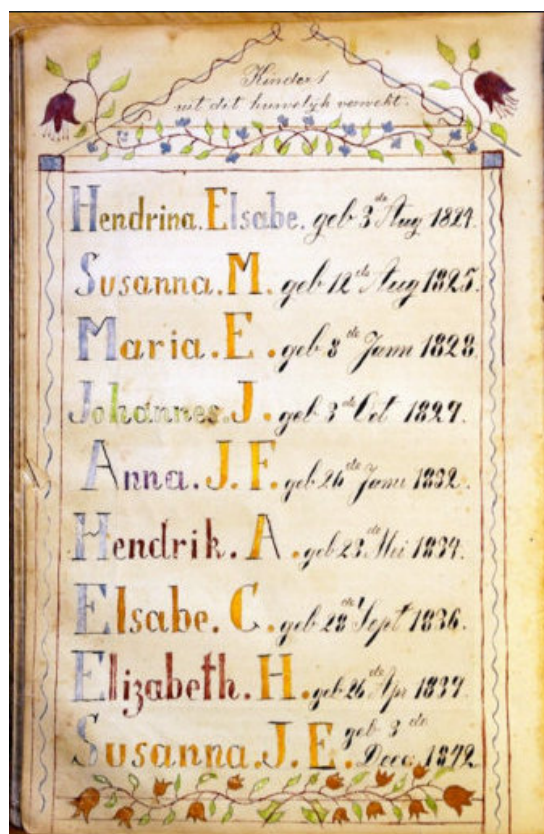 Kinder!
uit dit huwelijk verwekt.
Hendrina. Elsabe. geb 3de Aug 1824.
Susanna. M. geb 12de Aug 1825.
Maria. E. geb 8de Janu 1828.
Johannes. J. geb 3de Oct 1829.
Anna. J. F. geb 24de Janu 1832.
Hendrik. A. geb 23de Mei 1834.
Elsabe. C. geb 28de Sept 1836.
Elizabeth. H. geb 26de Apr 1839.
Susanna. J. E. geb 3de
Dece 1842.